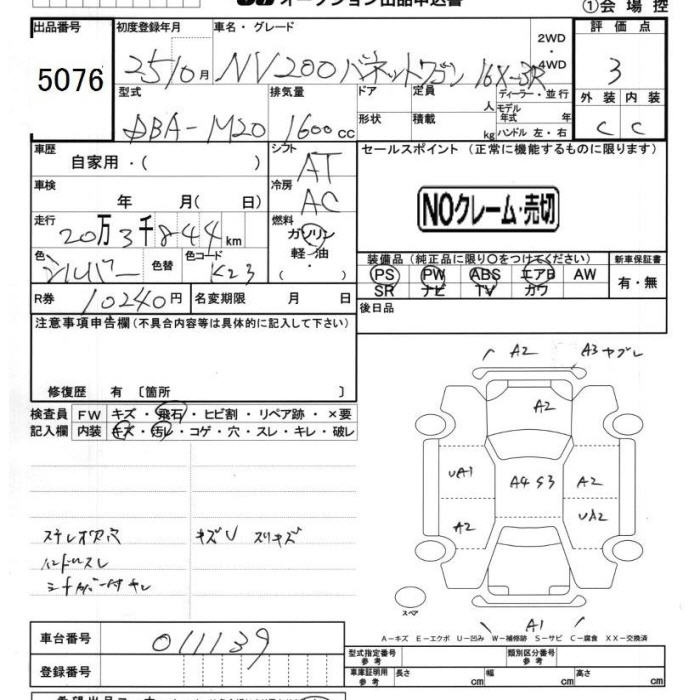 オークション出品申込書 ①会場控
出品番号 初度登録年月 車名・グレード 2WD・4WD 評価点
5076 25 10月 NV200バネットワゴン 16X-3R 3
型式 排気量 ドア 定員 人 ディーラー・並行 外装 内装
DBA-M20 1600cc 形状 積載 kg モデル年式 年 ハンドル 左・右 C C
車歴 自家用・( ) シフト AT セールスポイント (正常に機能するものに限ります)
車検 年 月( 日) 冷房 AC NOクレーム・売切
走行 20万3千844km 燃料 ガソリン 軽・油 ・( )
色 シルバー 色替 色コード K23 装備品 (純正品に限り○をつけてください) 新車保証書
PS PW ABS エアB AW 有・無
SR ナビ TV カワ
R券 10240円 名変期限 月 日 後日品
注意事項申告欄(不具合内容等は具体的に記入して下さい)
修復歴 有 〔箇所 〕
検査員 FW キズ・飛石・ヒビ割・リペア跡・×要
記入欄 内装 キズ・汚レ・コゲ・穴・スレ・キレ・破レ
A2 A3ヤブレ
A2
UA1 A4 S3 A2
A2 UA2
ステレオ穴 キズU スリキズ
ハンドルスレ
スペア
A1
A-キズ E-エクボ U-凹み W-補修跡 S-サビ C-腐食 XX-交換済
車台番号 011139
型式指定番号 参考 類別区分番号 参考
登録番号 車庫証明用 参考 長さ cm 幅 cm 高さ cm